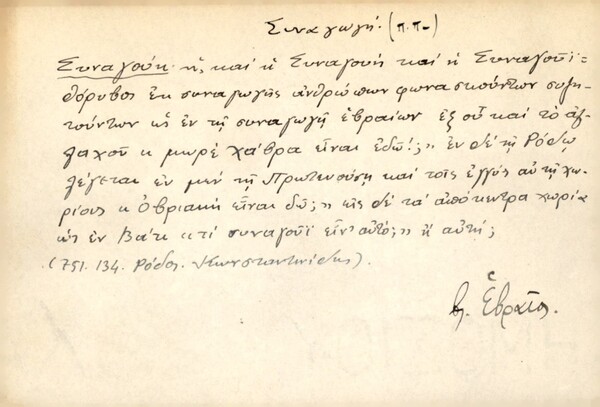 Συναγωγή. (π.π.)
Συναγοΰκ. ἡ, καὶ ἡ Συναγουή καὶ ἡ Συναγοΰϊ =
θόρυβος ἐκ συναγωγῆς ἀνθρώπων φωνασκούντων συζη-
τούντων ὡς ἐν τῇ συναγωγῇ ἑβραίων ἐξ οὗ καὶ τὸ ἀλ-
λαχοῦ « μωρὲ χάβρα εἶναι ἐδῶ; » ἐν δὲ τῇ Ρόδῳ
λέγεται ἐν μὲν τῇ Πρωτευούσῃ καὶ τοῖς ἐγγὺς αὐτῇ χω-
ρίοις « Ὁβριακὴ εἶναι δῶ; » εἰς δὲ τὰ ἀπόκεντρα χωρία
ὡς ἐν Βάτι « τί συναγοΰϊ εἶν' αὐτό; » ἢ αὐτή;
(751. 134. Ρόδος. Κωνσταντινίδης).
βλ. Ἑβραῖος.